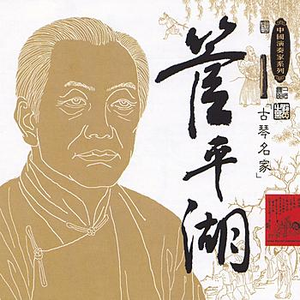 中國演奏家系列
「古琴名家」
管平湖